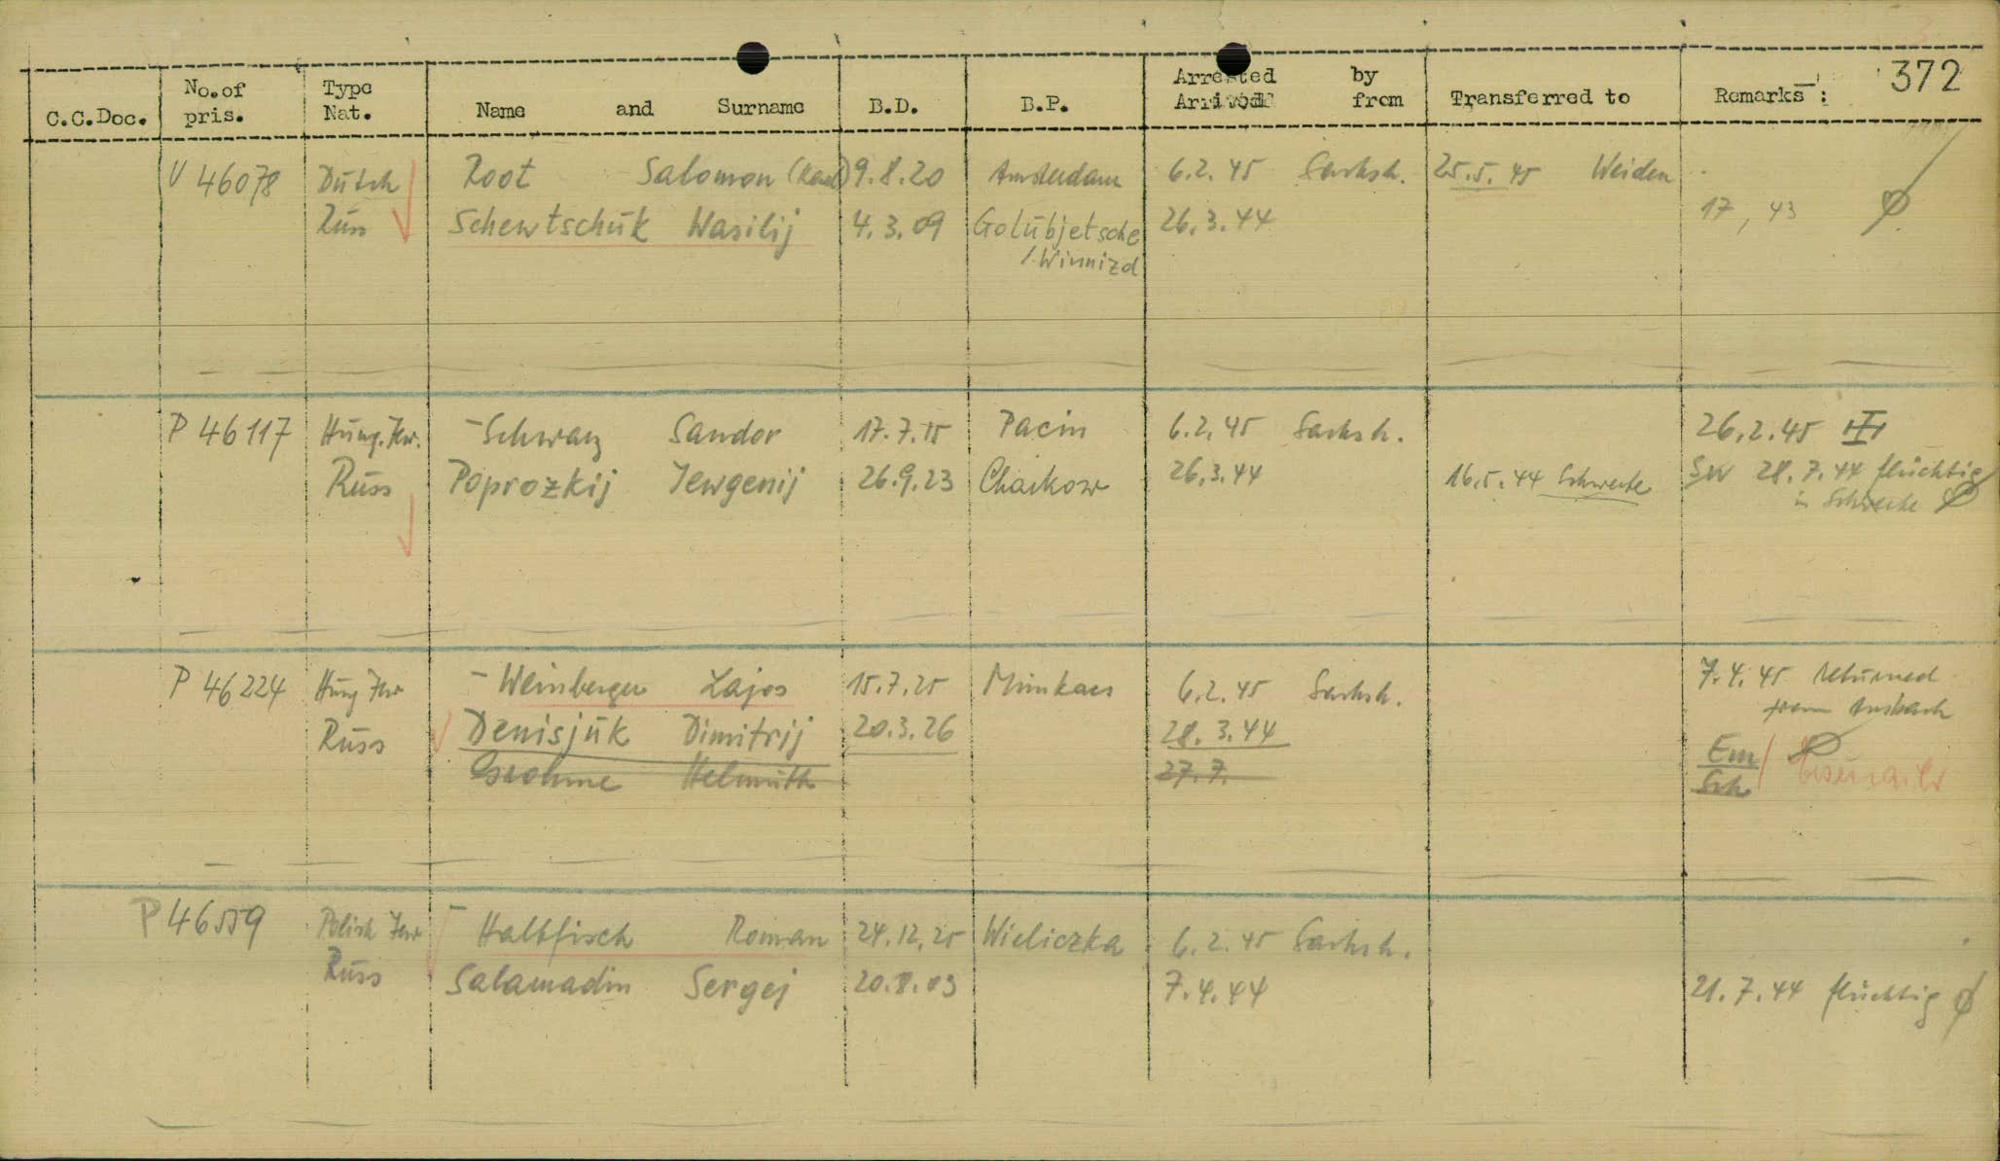 372
C.C.Doc. No.of pris. Type Nat. Name and Surname B.D. B.P. Arrested by Arrived from Transferred to Remarks :
V 46078 Dutch Root Salomon 9.8.20 Amsterdam 6.2.45 Sachsh. 25.5.45 Weiden
Russ Schewtschuk Wasilij 4.3.09 Golubjetsche 26.3.44 17, 43
/Winnizd
P 46117 Hung.Jew. - Schwarz Sandor 17.7.15 Pacin 6.2.45 Sachsh. 26.2.45 III
Russ Poprozkij Jewgenij 26.9.23 Charkow 26.3.44 16.5.44 Schwerte SW 28.7.44 flüchtig
in Schwerte
P 46224 Hung Jew - Weinberger Lajos 15.7.25 Munkacs 6.2.45 Sachsh. 7.4.45 returned
from Ansbach
Russ Denisjuk Dimitrij 20.3.26 28.3.44 Em
Grohme Helmuth 27.7. Sch
P 46559 Polish Jew - Halbfisch Roman 24.12.25 Wieliczka 6.2.45 Sachsh.
Russ Salamadin Sergej 20.8.03 7.4.44 21.7.44 flüchtig